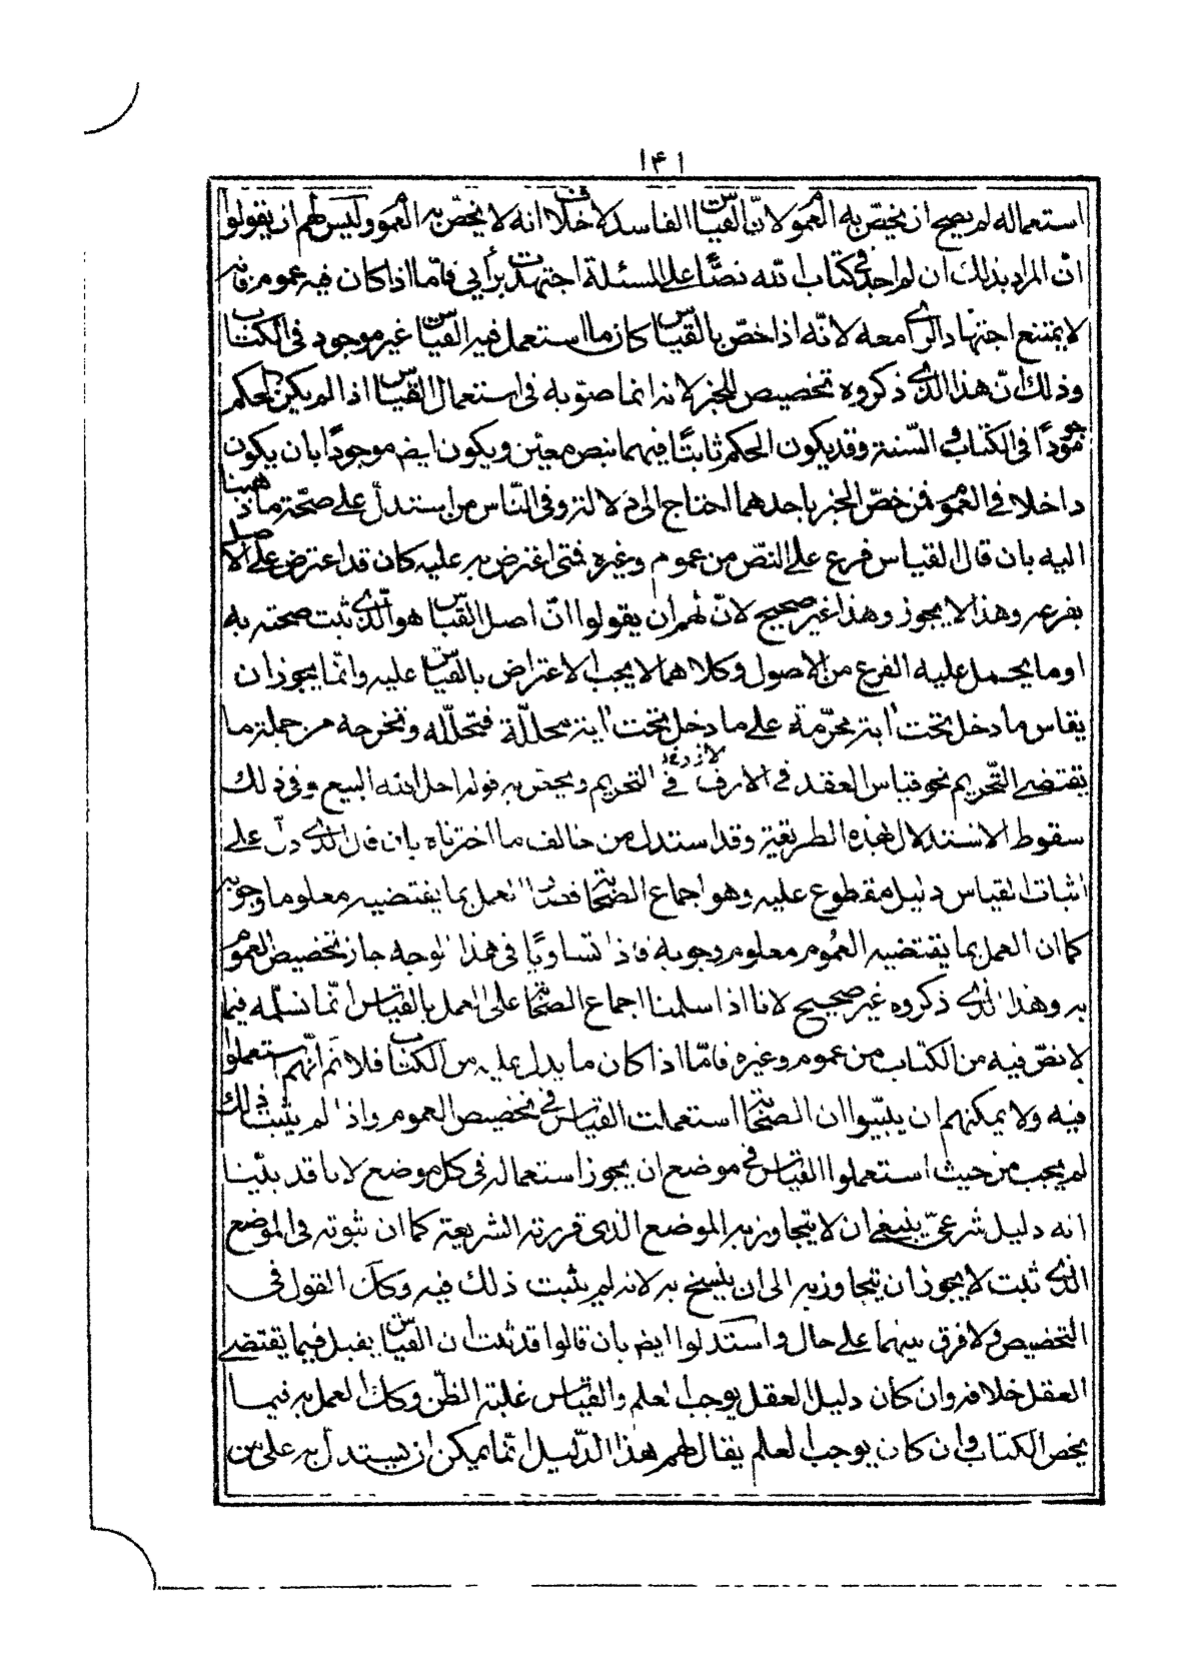 ۱۴۱
استعماله لم يصح ان يخصّ به العموم لانّ القياس الفاسد لا خلاف انه لا يخصّ به العموم وليس لهم ان يقولوا
انّ المراد بذلك ان لم اجد في كتاب الله نصًّا على المسئلة اجتهدت برأيي فامّا اذا كان فيه عموم فانه
لا يمتنع اجتهاد الرأي معه لانّه اذا خصّ بالقياس كان ما استعمل فيه القياس غير موجود في الكتاب
وذلك انّ هذا الذي ذكروه تخصيص للخبر لانه انما صوّبه في استعمال القياس اذا لم يكن الحكم
موجودًا في الكتاب و السّنة وقد يكون الحكم ثابتًا فيهما بنص معيّن ويكون ايض موجودًا بان يكون
داخلا في العموم فمن خصّ الخبر باحدهما احتاج الى دلالة وفي النّاس من استدلّ على صحّة ما ذهبنا
اليه بان قال القياس فرع على النصّ من عموم وغيره فمتى اعترض به عليه كان قد اعترض على الاصل
بفرعه وهذا لا يجوز وهذا غير صحيح لانّ لهم ان يقولوا انّ اصل القياس هو الّذي ثبت صحته به
او ما يحمل عليه الفرع من الاصول وكلاهما لا يجب الاعتراض بالقياس عليه وانّما يجوز ان
يقاس ما دخل تحت اية محرّمة على ما دخل تحت اية محلّلة فتحلّله وتخرجه من جملة ما
يقتضي التّحريم نحو قياس العقد في الارز في التحريم ويخصّ به قوله احل الله البيع وفي ذلك
سقوط الاستدلال بهذه الطريقة وقد استدل من خالف ما اخترناه بان قال الذي دلّ على
اثبات القياس دليل مقطوع عليه وهو اجماع الصّحابة فصار العمل بما يقتضيه معلوما وجوبه
كما ان العمل بما يقتضيه العُموم معلوم وجوبه فاذا تساويا في هذا الوجه جاز تخصيص العموم
به وهذا الذي ذكروه غير صحيح لانا اذا سلمنا اجماع الصّحابة على العمل بالقياس انّما نسلّمه فيما
لا نصّ فيه من الكتاب من عموم وغيره فامّا اذا كان ما يدل عليه من الكتاب فلا نم انّهم استعملوا
فيه ولا يمكنهم ان يبيّنوا ان الصّحابة استعملت القياس في تخصيص العموم واذا لم يثبت ذلك
لم يجب من حيث استعملوا القياس في موضع ان يجوز استعماله في كل موضع لانا قد بيّنا
انه دليل شرعيّ ينبغي ان لا يتجاوز به الموضع الذي قررته الشريعة كما ان ثبوته في الموضع
الذي ثبت لا يجوز ان يتجاوز به الى ان ينسخ به لانه لم يثبت ذلك فيه وكك القول في
التخصيص ولا فرق بينهما على حال واستدلوا ايض بان قالوا قد ثبت ان القياس يقبل فيما يقتضي
العقل خلافه وان كان دليل العقل يوجب العلم والقياس غلبة الظّن وكك العمل به فيما
يخص الكتاب وان كان يوجب العلم يقال لهم هذا الدّليل انّما يمكن ان يستدل به على من